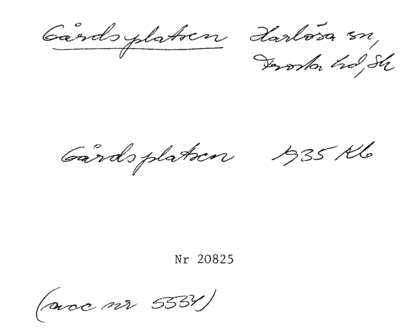 Gårdsplatsen Harlösa sn,
Frosta hd, Sk
Gårdsplatsen 1935 Kb
Nr 20825
(acc nr 5551)